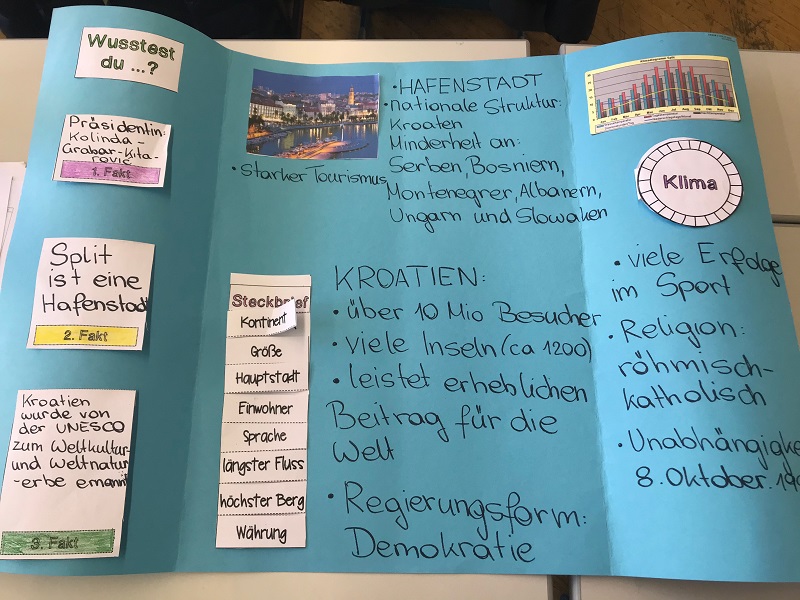 Wusstest
du ...?
Präsidentin:
Kolinda-
Grabar-Kita-
rovic
1. Fakt
Split
ist eine
Hafenstadt
2. Fakt
Kroatien
wurde von
der UNESCO
zum Weltkultur-
und Weltnatur
-erbe ernannt
3. Fakt
• Starker Tourismus
• HAFENSTADT
• nationale Struktur:
Kroaten
Minderheit an:
Serben, Bosniern,
Montenegrer, Albanern,
Ungarn und Slowaken
Steckbrief
Kontinent
Größe
Hauptstadt
Einwohner
Sprache
längster Fluss
höchster Berg
Währung
KROATIEN:
• über 10 Mio Besucher
• viele Inseln (ca 1200)
• leistet erheblichen
Beitrag für die
Welt
• Regierungsform:
Demokratie
Klima
• viele Erfolge
im Sport
• Religion:
röhmisch-
katholisch
• Unabhängigke
8. Oktober. 19